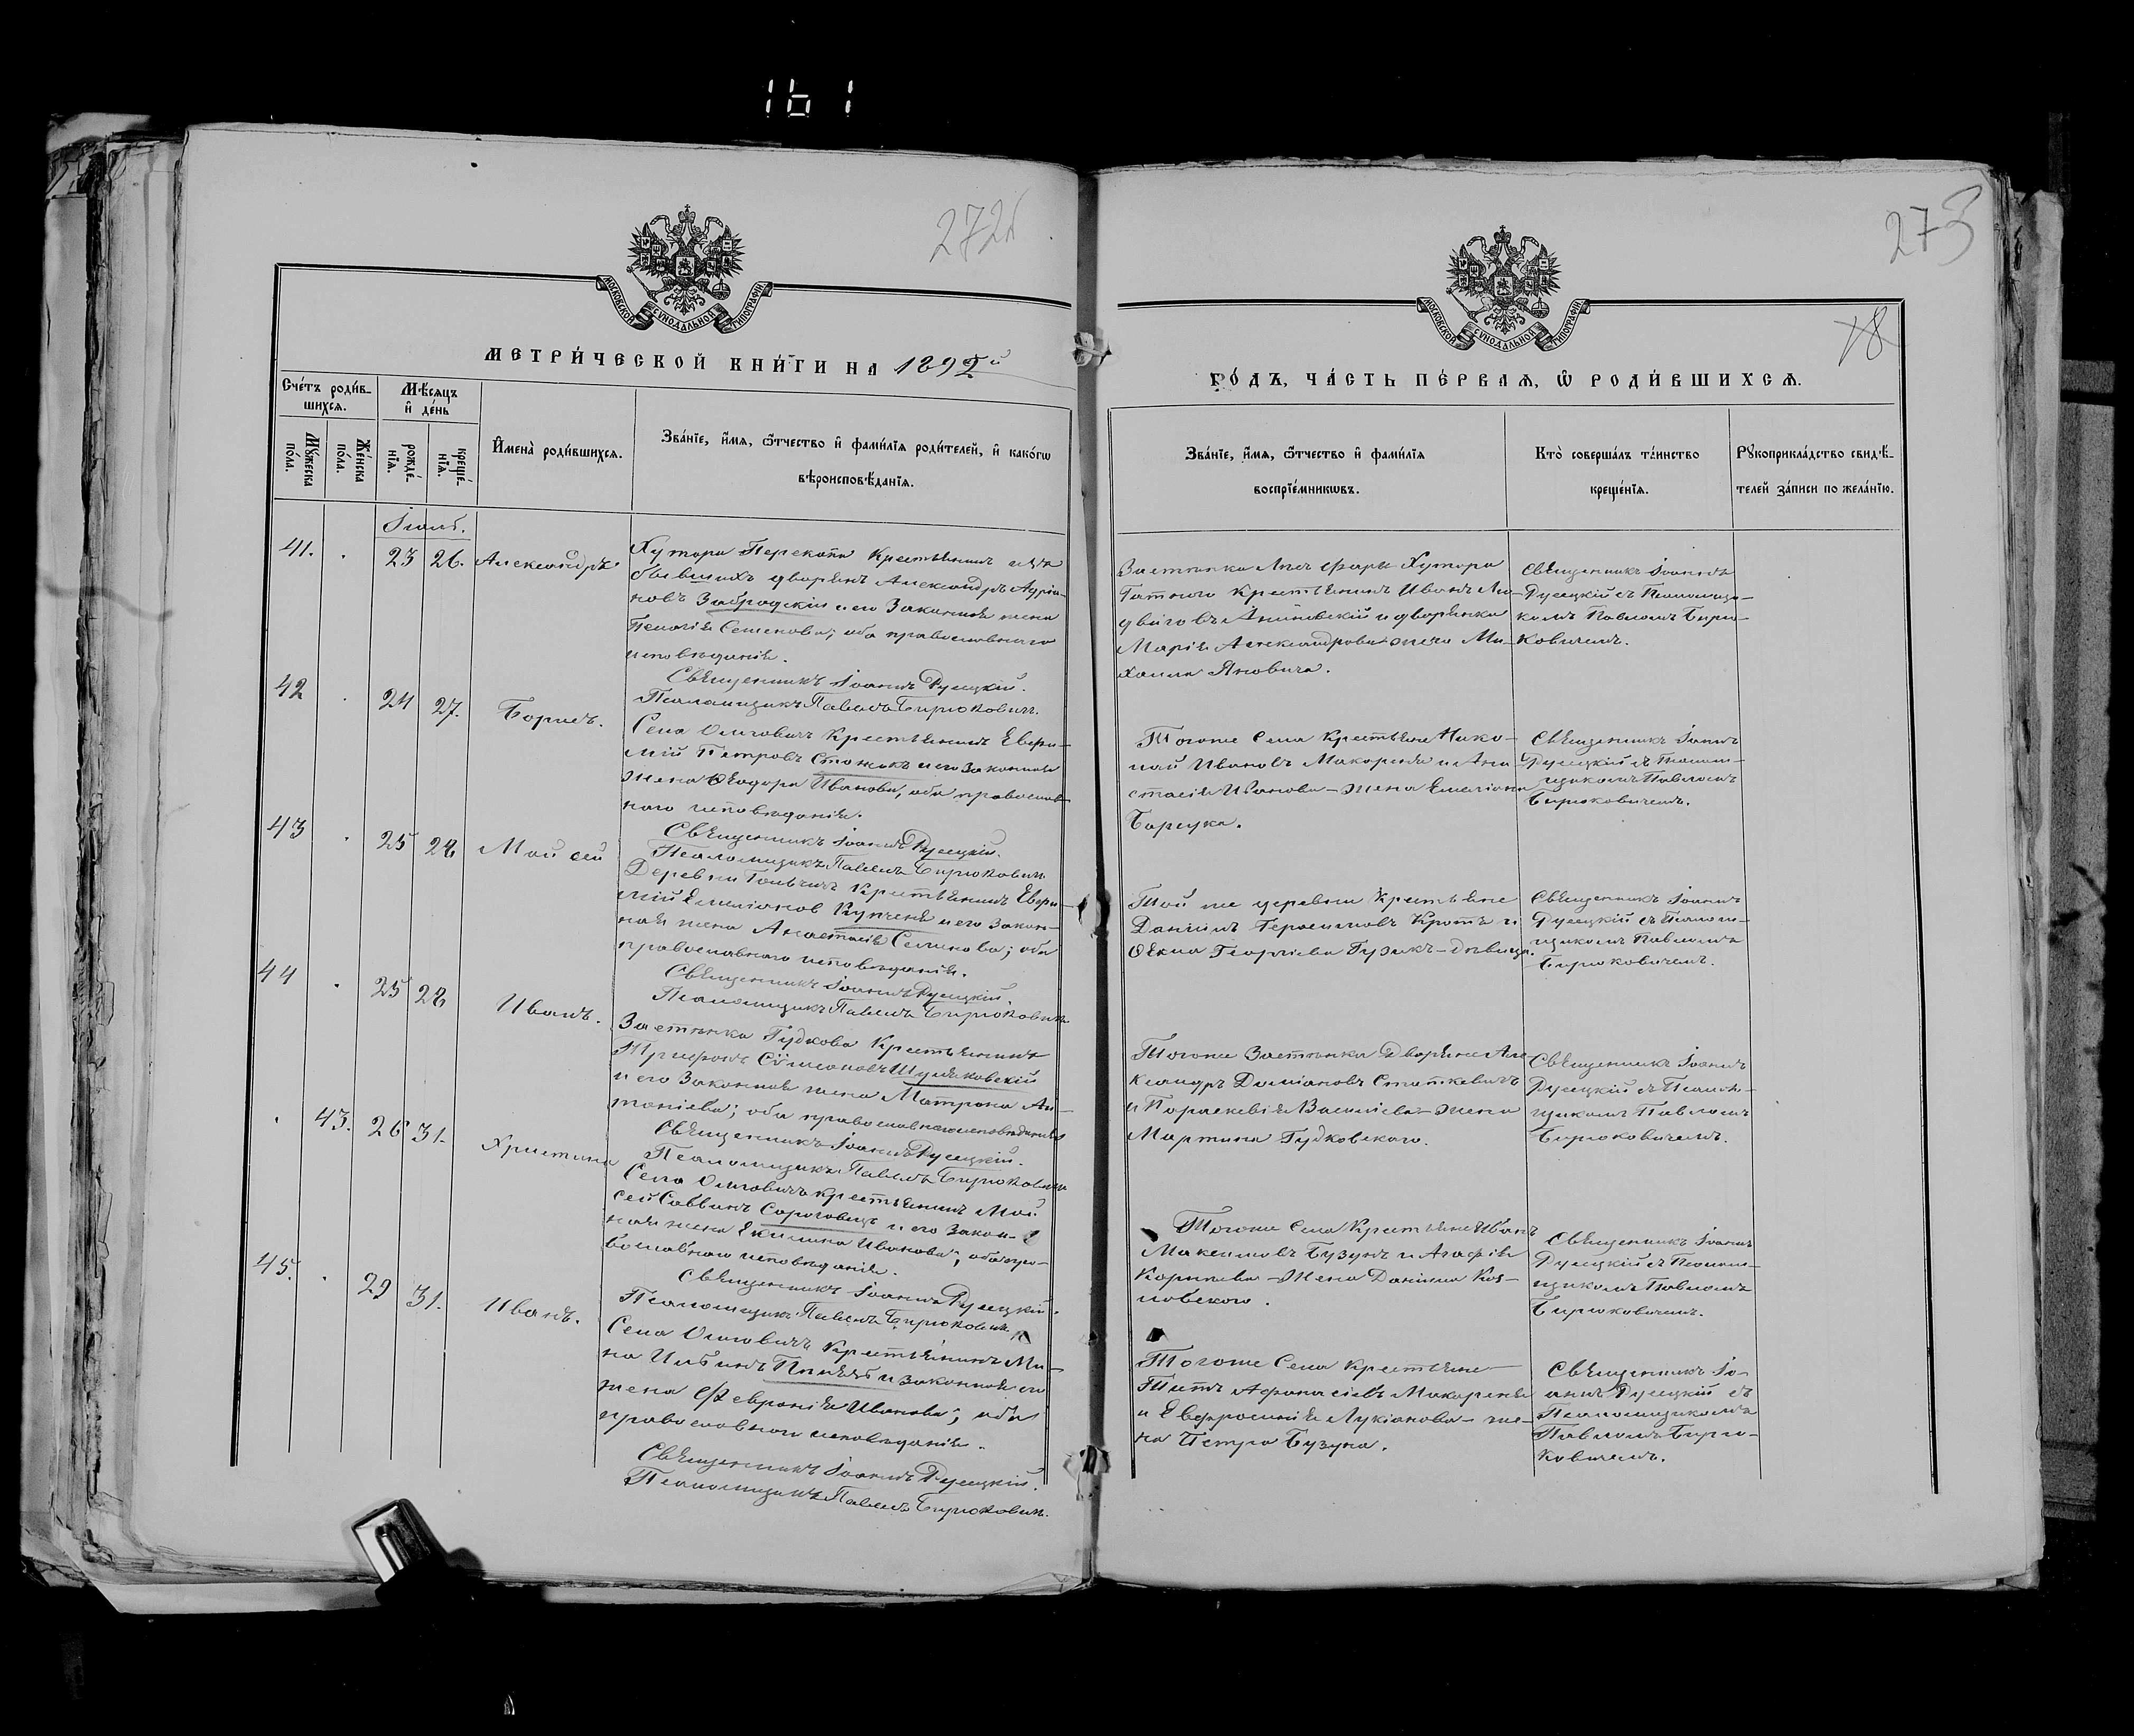 161
272
273
МОСКОВСКОЙ СУНОДАЛЬНОЙ ТИПОГРАФІИ
МЕТРИ́ЧЕСКОЙ КНИ́ГИ НА 1892й
Сче́тъ роди́в-
шихсѧ.
Мѣ́сѧцъ
и҆ де́нь
Мꙋ́жеска
по́ла.
Же́нска
по́ла.
рожде́-
нїѧ.
креще́-
нїѧ.
И҆мена̀ роди́вшихсѧ.
Зва́нїе, и҆́мѧ, ѻ҆́тчество и҆ фами́лїѧ роди́телей, и҆ како́гѡ
вѣроисповѣ́данїѧ.
Іюль.
41. . 23 26. Александръ
Хутора Перекопа крестьянинъ изъ
бывшихъ дворянъ Александръ Адріа-
новъ Забродскій и его законная жена
Пелагія Семенова; оба православнаго
исповѣданія.
Священникъ Іоаннъ Русецкій.
Псаломщикъ Павелъ Бирюковичъ.
42 . 24 27. Борисъ.
Села Ольговичъ крестьянинъ Евфи-
мій Петровъ Стожокъ и его законная
жена Ѳеодора Иванова, оба православ-
наго исповѣданія.
Священникъ Іоаннъ Русецкій.
Псаломщикъ Павелъ Бирюковичъ
43 . 25 28 Мойсей
Деревни крестьянинъ Евфи-
мій Емеліановъ Купченя и его закон-
ная жена Анастасія Семенова; оба
православнаго исповѣданія.
Священникъ Іоаннъ Русецкій.
Псаломщикъ Павелъ Бирюковичъ
44 . 25 28 Иванъ.
Застѣнка Гудкова крестьянинъ
Трифонъ Сѵмеоновъ Шуляковскій
и его законная жена Матрона Ан-
тоніева; оба православнаго исповѣданія
Священникъ Іоаннъ Русецкій.
Псаломщикъ Павелъ Бирюковичъ
. 43. 26 31. Христина
Села Ольговичъ крестьянинъ Мой
сей Саввинъ Сороговецъ и его закон-
ная жена Акилина Иванова; оба пра-
вославнаго исповѣданія.
Священникъ Іоаннъ Русецкій.
Псаломщикъ Павелъ Бирюковичъ
45. . 29 31. Иванъ.
Села Ольговичъ крестьянинъ Ми-
на Ильинъ и законная его
жена Февронія Иванова; оба
православнаго исповѣданія.
Священникъ Іоаннъ Русецкій.
Псаломщикъ Павелъ Бирюковичъ.
МОСКОВСКОЙ СУНОДАЛЬНОЙ ТИПОГРАФІИ
ГО́ДЪ, ЧА́СТЬ ПЕ́РВАѦ, Ѡ҆ РОДИ́ВШИХСѦ.
Зва́нїе, и҆́мѧ, ѻ҆́тчество и҆ фами́лїѧ
воспрїе́мникѡвъ.
Кто̀ соверша́лъ та́инство
креще́нїѧ.
Рꙋкоприкла́дство свидѣ́-
телей за́писи по жела́нїю.
Застѣнка Хутора
крестьянинъ Иванъ Лю-
двиговъ и дворянка
Марія Александрова жена Ми-
хаила Яновича.
Священникъ Іоаннъ
Русецкій съ Псаломщи-
комъ Павломъ Бирю-
ковичемъ.
Тогоже Села крестьяне Нико-
лай Ивановъ Макареня и Ана-
стасія Иванова - жена Емеліана
Борсука.
Священникъ Іоаннъ
Русецкій съ Псалом-
щикомъ Павломъ
Бирюковичемъ.
Той же деревни крестьяне
Даніилъ Герасимовъ Кротъ и
Ѳекла Георгіева Гузикъ - дѣвица.
Священникъ Іоаннъ
Русецкій съ Псалом-
щикомъ Павломъ
Бирюковичемъ.
Тогоже Застѣнка Дворяне Але-
ксандръ Даміановъ Статкевичъ
и Параскевія Васильева - жена
Мартина Гудковскаго.
Священникъ Іоаннъ
Русецкій съ Псалом-
щикомъ Павломъ
Бирюковичемъ.
Тогоже Села Крестьяне Иванъ
Максимовъ Бузунъ и Агафія
Карпова - жена Даніила Коз-
ловскаго.
Священникъ Іоаннъ
Русецкій съ Псалом-
щикомъ Павломъ
Бирюковичемъ.
Тогоже Села крестьяне
Титъ Афанасіевъ Макареня
и Евфросинія Лукіанова - же-
на Петра Бузуна.
Священникъ Іо-
аннъ Русецкій съ
Псаломщикомъ
Павломъ Бирю-
ковичемъ.